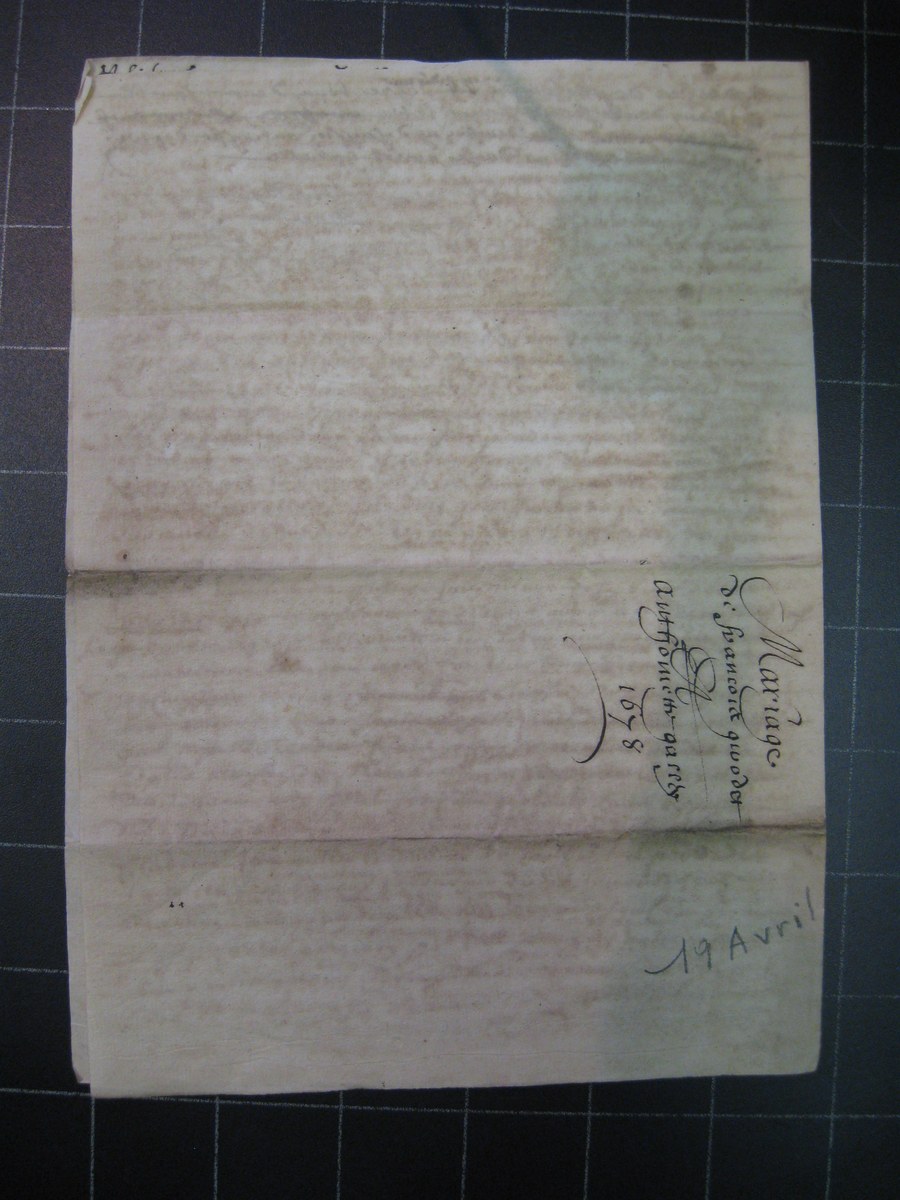 Mariage
de francois guodet
Et
anthoinette garcer
1678
19 Avril